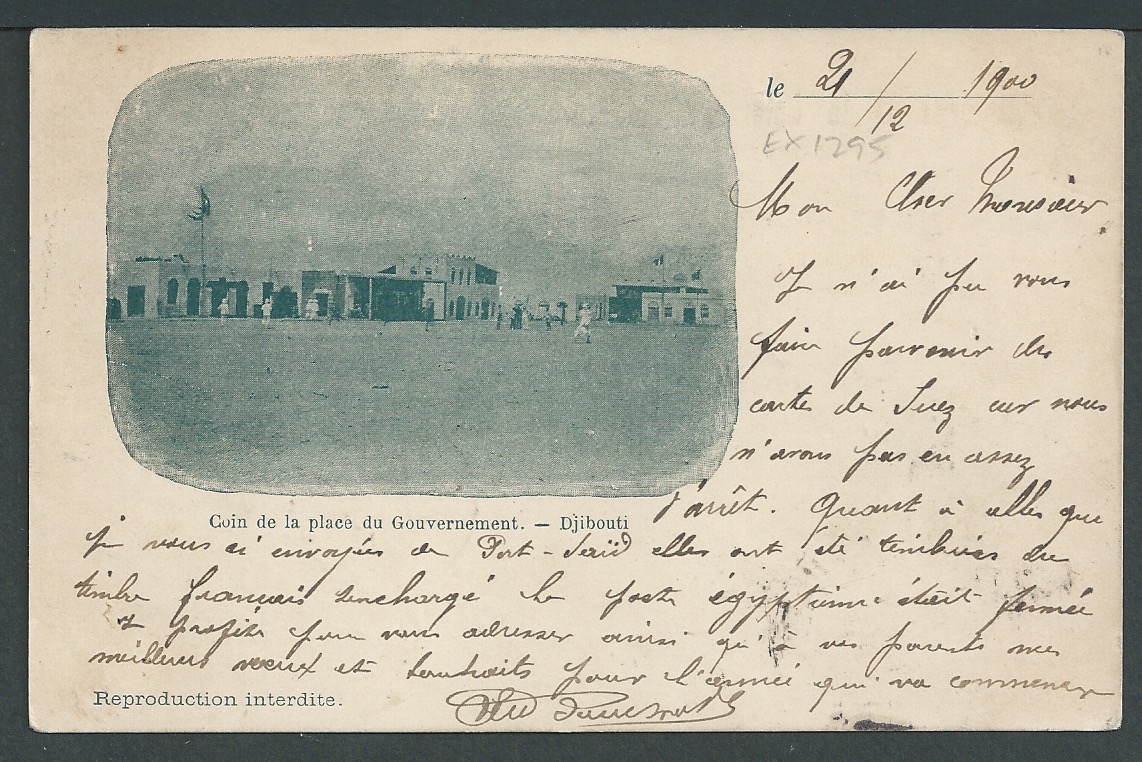 le 21/12 1900
EX1295
Mon Cher Monsieur
Je n'ai pu vous
faire parvenir des
cartes de Suez car nous
n'avons pas eu assez
d'arrêt. Quant à celles que
je vous ai envoyées de Port-Saïd elles ont été timbrées du
timbre français surchargé la poste égyptienne était fermée
Je profite pour vous adresser ainsi qu'à vos parents mes
meilleurs voeux et souhaits pour l'année qui va commencer
Coin de la place du Gouvernement. — Djibouti
Reproduction interdite.